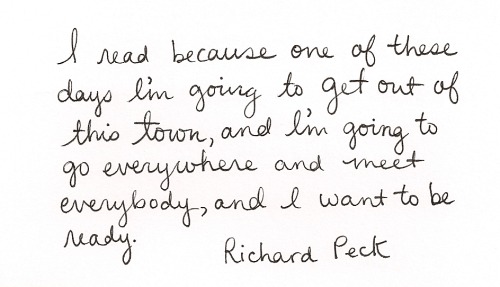 I read because one of these
days I'm going to get out of
this town, and I'm going to
go everywhere and meet
everybody, and I want to be
ready.
Richard Peck